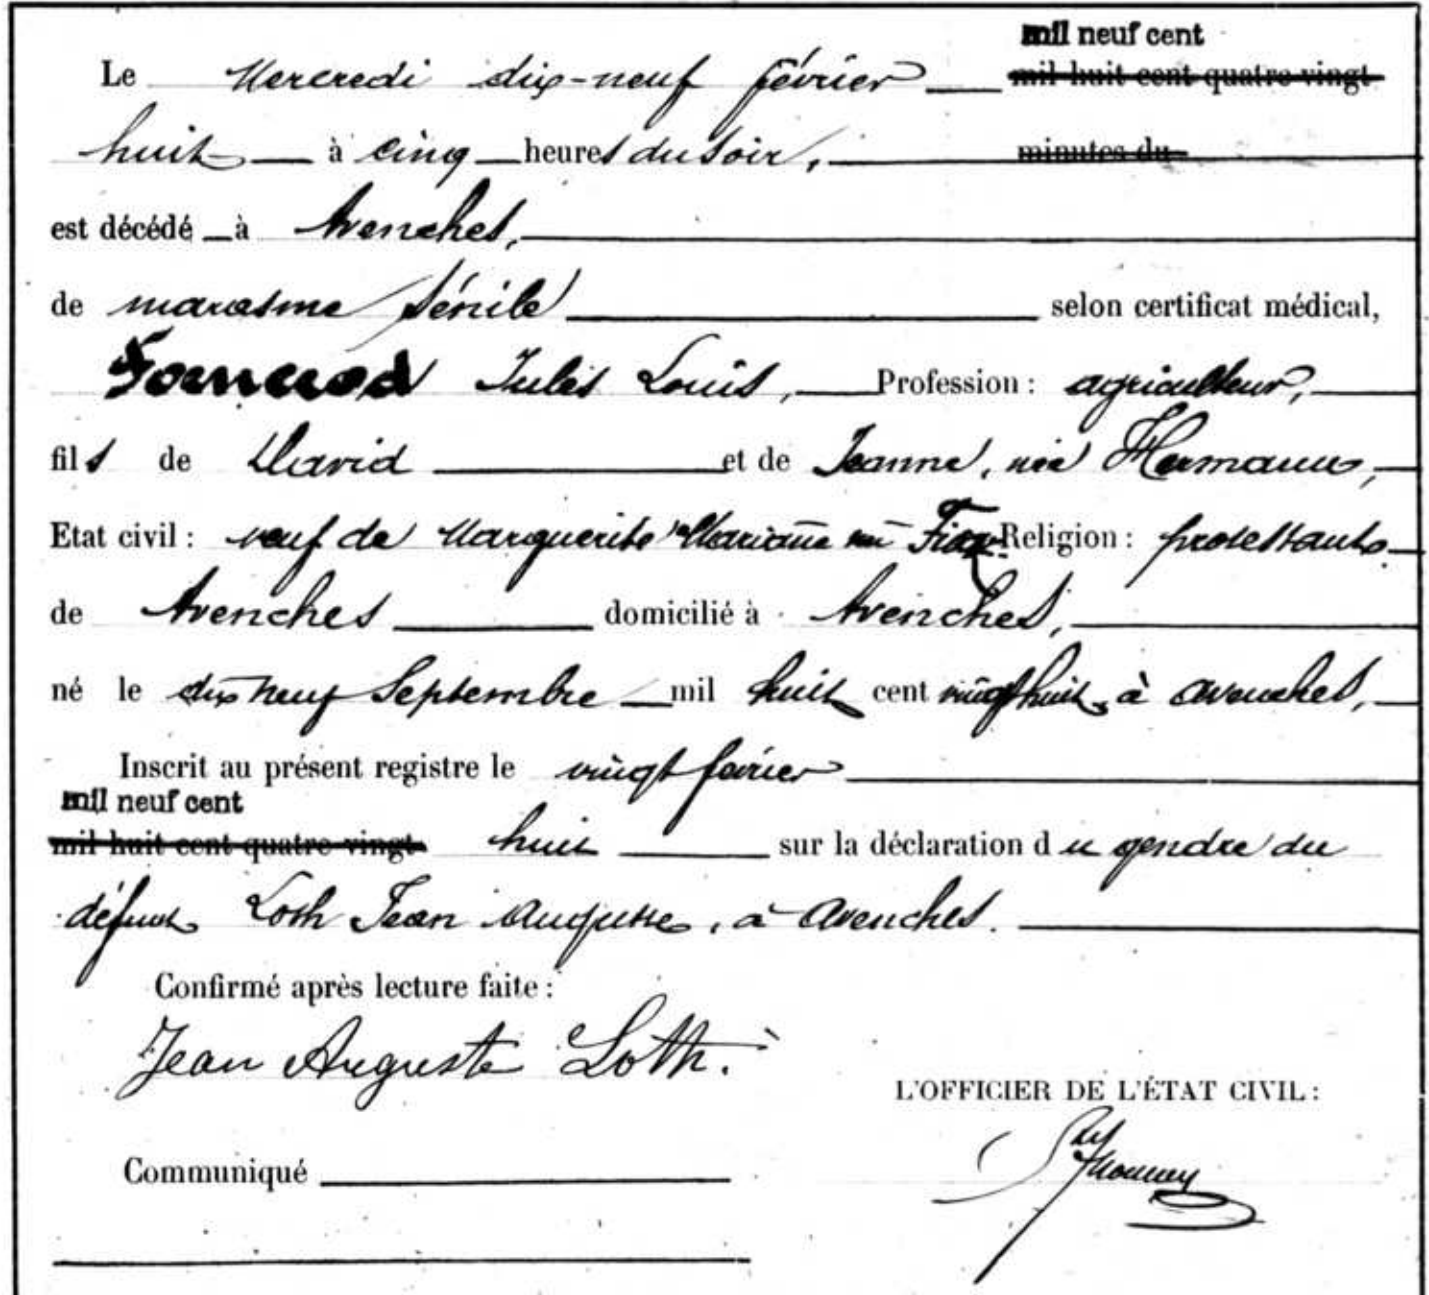 mil neuf cent
Le Mercredi dix-neuf février mil huit cent quatre-vingt
huit à cinq heures du soir, minutes du
est décédé à Avenches,
de marasme sénile selon certificat médical,
Fornerod Jules Louis, Profession : agriculteur,
fils de David et de Jeanne, née Hermann,
Etat civil : veuf de Marguerite Mariane née Religion : protestante
de Avenches domicilié à Avenches,
né le dix neuf Septembre mil huit cent vingt huit, à Avenches,
Inscrit au présent registre le vingt février
mil neuf cent
mil huit cent quatre-vingt huit sur la déclaration du gendre du
défunt Loth Jean Auguste, à Avenches.
Confirmé après lecture faite :
Jean Auguste Loth.
L'OFFICIER DE L'ÉTAT CIVIL :
Communiqué